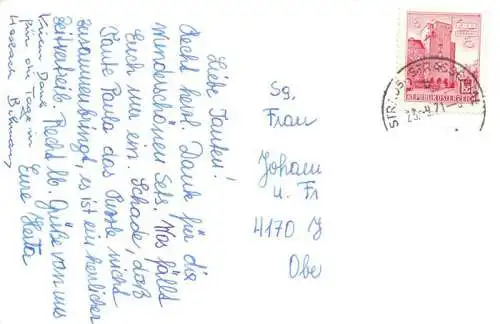 Liebe Tanten!
Recht herzl. Dank für die
wunderschönen Sets. Was fällt
Euch nur ein. Schade, daß
Tante Paula das Puzzle nicht
zusammenbringt, es ist ein herrlicher
Zeitvertreib. Recht lb. Grüße von uns
Eure Herta
Vielen Dank
für die Tage in
Sg.
Frau
Johan
u. Fr
4170 H
Obe
REPUBLIK ÖSTERREICH
23.-9.71